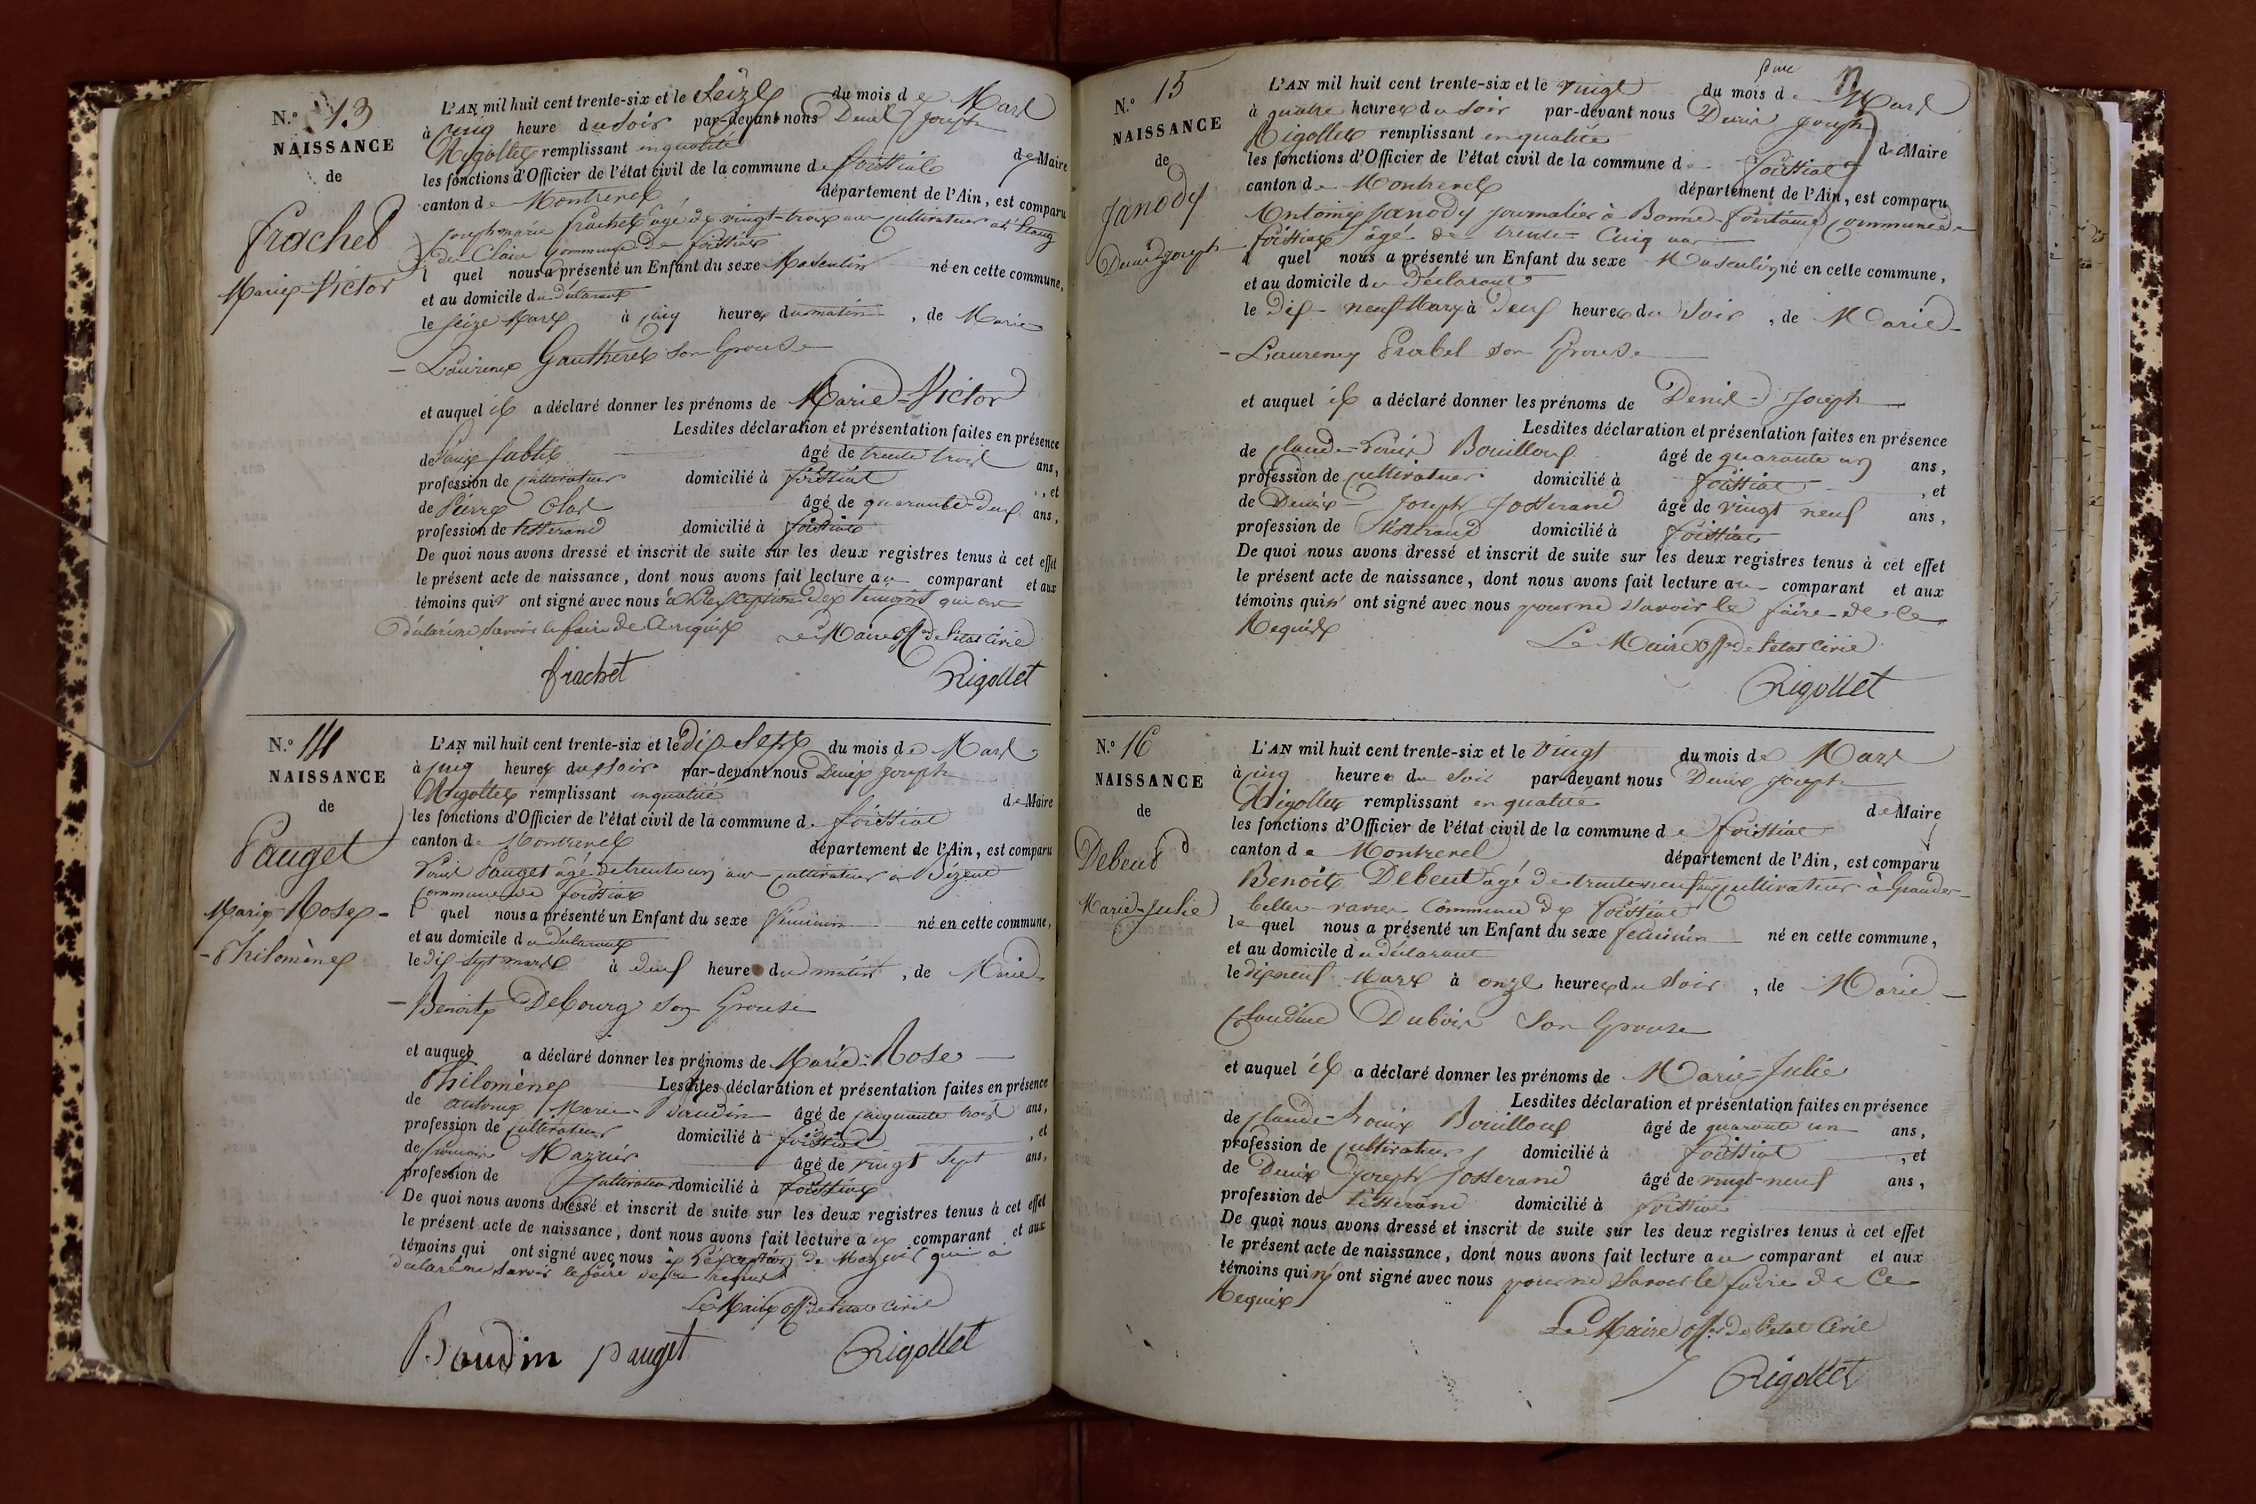 N.° 13
NAISSANCE
de
Frachet
Marie-Victor
L'AN mil huit cent trente-six et le Seize du mois de Mars
à cinq heure du soir par-devant nous Denis Joseph
Rigollet remplissant en qualité de Maire
les fonctions d'Officier de l'état civil de la commune de foissiat
canton de Montrevel département de l'Ain, est comparu
joseph marie frachet âgé de vingt-trois ans cultivateur à l'Etang
du Clair Commune de foissiat
l quel nous a présenté un Enfant du sexe Masculin né en cette commune,
et au domicile du déclarant
le seize Mars à cinq heures du matin, de Marie
Laurence Gautheret son Epouse
et auquel il a déclaré donner les prénoms de Marie-Victor
Lesdites déclaration et présentation faites en présence
de Louis âgé de trente trois ans,
profession de cultivateur domicilié à foissiat, et
de Pierre Clos âgé de quarante-deux ans,
profession de tisserand domicilié à foissiat
De quoi nous avons dressé et inscrit de suite sur les deux registres tenus à cet effet
le présent acte de naissance, dont nous avons fait lecture au comparant et aux
témoins qui ont signé avec nous à l'exception des temoins qui ont
déclaré ne savoir le faire de ce requis Le Maire Off. de l'etat Civil
frachet Rigollet
N.° 14
NAISSANCE
de
Pauget
Marie-Rose-
-Philomène
L'AN mil huit cent trente-six et le dix Sept du mois de Mars
à cinq heures du soir par-devant nous Denis Joseph
Rigollet remplissant en qualité de Maire
les fonctions d'Officier de l'état civil de la commune de foissiat
canton de Montrevel département de l'Ain, est comparu
Louis Pauget âgé de trente un ans cultivateur à Bézent
commune de foissiat
l quel nous a présenté un Enfant du sexe féminin né en cette commune,
et au domicile du déclarant
le dix sept mars à deux heure du matin, de Marie
Benoite Debourg son Epouse
et auquel a déclaré donner les prénoms de Marie-Rose
Philomène Lesdites déclaration et présentation faites en présence
de antoine Marie Baudin âgé de cinquante trois ans,
profession de cultivateur domicilié à foissiat, et
de Mazuir âgé de vingt sept ans,
profession de cultivateur domicilié à foissiat
De quoi nous avons dressé et inscrit de suite sur les deux registres tenus à cet effet
le présent acte de naissance, dont nous avons fait lecture aux comparant et aux
témoins qui ont signé avec nous à l'exception de Mazuir qui a
déclaré ne savoir le faire de ce requis
Le Maire Off. de l'etat Civil
Baudin pauget Rigollet
N.° 15
NAISSANCE
de
Janody
Denis Joseph
L'AN mil huit cent trente-six et le vingt du mois de Mars
à quatre heures du soir par-devant nous Denis Joseph
Rigollet remplissant en qualité de Maire
les fonctions d'Officier de l'état civil de la commune de foissiat
canton de Montrevel département de l'Ain, est comparu
Antoine Janody journalier à Bonne-fontaine Commune de
foissiat âgé de trente-Cinq ans
l quel nous a présenté un Enfant du sexe Masculin né en cette commune,
et au domicile du Déclarant
le dix-neuf Mars à deux heures du soir, de Marie-
-Laurence Prabel son Epouse
et auquel il a déclaré donner les prénoms de Denis-Joseph
Lesdites déclaration et présentation faites en présence
de Claude-Louis Bouilloux âgé de quarante un ans,
profession de cultivateur domicilié à foissiat, et
de Denis-Joseph Josserand âgé de vingt neuf ans,
profession de tisserand domicilié à foissiat
De quoi nous avons dressé et inscrit de suite sur les deux registres tenus à cet effet
le présent acte de naissance, dont nous avons fait lecture au comparant et aux
témoins qui n'ont signé avec nous pour ne savoir le faire de Ce
Requis
Le Maire Off. de l'etat Civil
Rigollet
N.° 16
NAISSANCE
de
Debeut
Marie-Julie
L'AN mil huit cent trente-six et le vingt du mois de Mars
à cinq heures du soir par-devant nous Denis Joseph
Rigollet remplissant en qualité de Maire
les fonctions d'Officier de l'état civil de la commune de foissiat
canton de Montrevel département de l'Ain, est comparu
Benoit Debeut âgé de trente neuf ans cultivateur à Grande-
belle-vavre Commune de foissiat
le quel nous a présenté un Enfant du sexe féminin né en cette commune,
et au domicile du déclarant
le dix neuf Mars à onze heures du soir, de Marie-
Claudine Dubois son Epouse
et auquel il a déclaré donner les prénoms de Marie-Julie
Lesdites déclaration et présentation faites en présence
de Claude-Louis Bouilloux âgé de quarante un ans,
profession de cultivateur domicilié à foissiat, et
de Denis Joseph Josserand âgé de vingt-neuf ans,
profession de tisserand domicilié à foissiat
De quoi nous avons dressé et inscrit de suite sur les deux registres tenus à cet effet
le présent acte de naissance, dont nous avons fait lecture au comparant et aux
témoins qui n'ont signé avec nous pour ne savoir le faire de Ce
Requis
Le Maire Off. de l'etat Civil
Rigollet